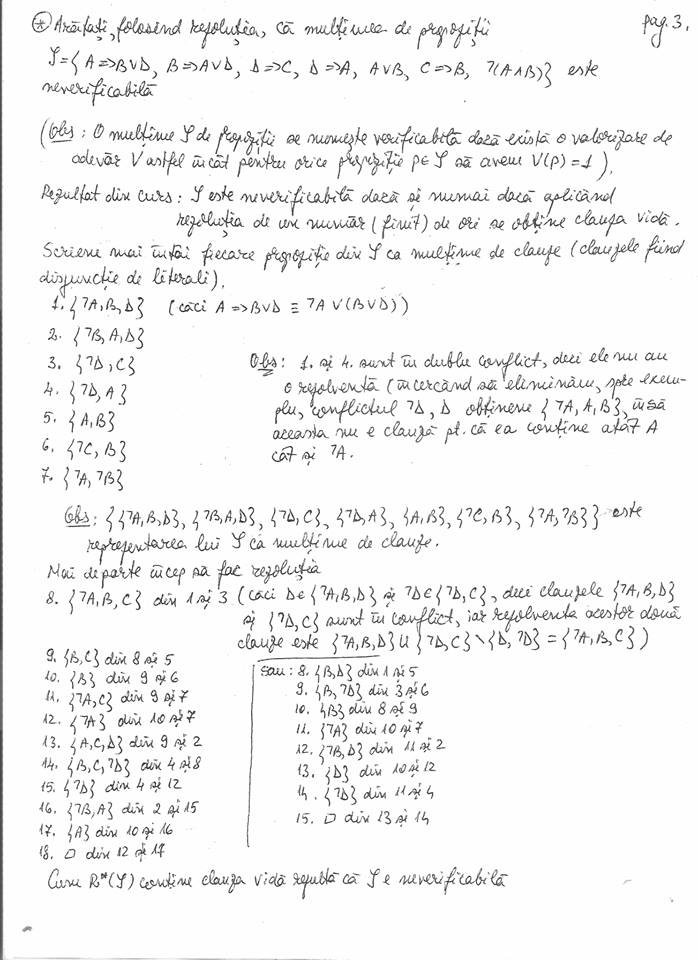 pag. 3.
⊛ Arătați, folosind rezoluția, că mulțimea de propoziții
S={A=>B∨D, B=>A∨D, D=>C, D=>A, A∨B, C=>B, ¬(A∧B)} este
neverificabilă
(Obs: O mulțime S de propoziții se numește verificabilă dacă există o valorizare de
adevăr V astfel încât pentru orice propoziție p∈S să avem V(p)=1).
Rezultat din curs: S este neverificabilă dacă și numai dacă aplicând
rezoluția de un număr (finit) de ori se obține clauza vidă.
Scriem mai întâi fiecare propoziție din S ca mulțime de clauze (clauzele fiind
disjuncție de literali).
1. {¬A,B,D} (căci A=>B∨D ≡ ¬A∨(B∨D))
2. {¬B,A,D}
3. {¬D,C}
4. {¬D,A}
5. {A,B}
6. {¬C,B}
7. {¬A,¬B}
Obs: 1. și 4. sunt în dublu conflict, deci ele nu au
o rezolventă (încercând să eliminăm, spre exem-
plu, conflictul ¬D, D obținem {¬A,A,B}, însă
aceasta nu e clauză pt. că ea conține atât A
cât și ¬A.
Obs: {{¬A,B,D}, {¬B,A,D}, {¬D,C}, {¬D,A}, {A,B}, {¬C,B}, {¬A,¬B}} este
reprezentarea lui S ca mulțime de clauze.
Mai departe încep să fac rezoluția
8. {¬A,B,C} din 1 și 3 (căci D∈{¬A,B,D} și ¬D∈{¬D,C}, deci clauzele {¬A,B,D}
și {¬D,C} sunt în conflict, iar rezolventa acestor două
clauze este {¬A,B,D}∪{¬D,C}\{D,¬D}={¬A,B,C})
9. {B,C} din 8 și 5
10. {B} din 9 și 6
11. {¬A,C} din 9 și 7
12. {¬A} din 10 și 7
13. {A,C,D} din 9 și 2
14. {B,C,¬D} din 4 și 8
15. {¬D} din 4 și 12
16. {¬B,A} din 2 și 15
17. {A} din 10 și 16
18. □ din 12 și 17
sau: 8. {B,D} din 1 și 5
9. {B,¬D} din 3 și 6
10. {B} din 8 și 9
11. {¬A} din 10 și 7
12. {¬B,D} din 11 și 2
13. {D} din 10 și 12
14. {¬D} din 11 și 4
15. □ din 13 și 14
Cum R*(S) conține clauza vidă rezultă că S e neverificabilă